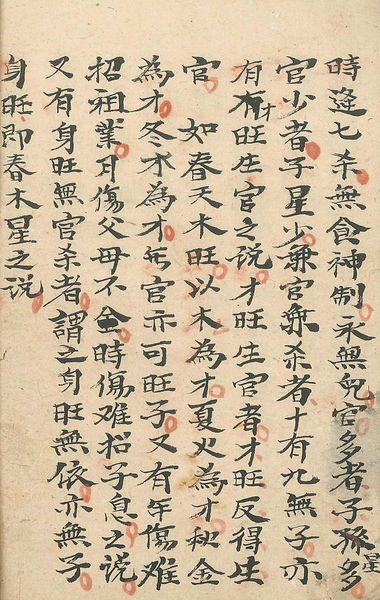 時逢七杀無食神制永無兒官多者子孫多
官少者子星少兼官兼杀者十有九無子亦
有有才旺生官之说才旺生官者才旺反得生
官 如春天木旺以木為才夏火為才秋金
為才冬水為才無官亦可旺子又有年傷难
招祖業月傷父母不全時傷难招子息之说
又有身旺無官杀者謂之身旺無依亦無子
身旺即春木星之说
星